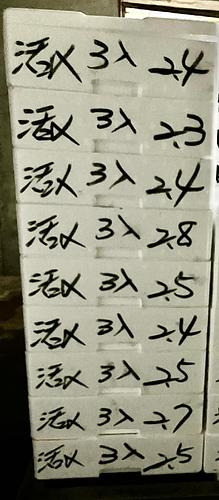 活〆 3入 2.4
活〆 3入 2.3
活〆 3入 2.4
活〆 3入 2.8
活〆 3入 2.5
活〆 3入 2.4
活〆 3入 2.5
活〆 3入 2.7
活〆 3入 2.5